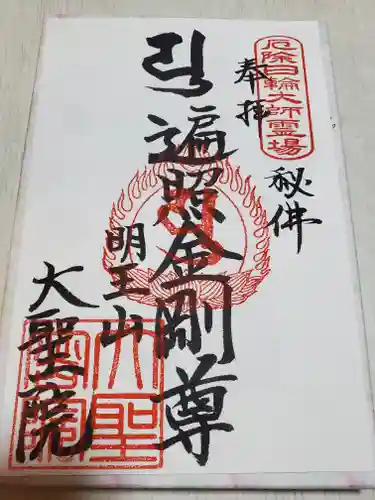 厄除日輪大師霊場
奉拝
秘佛
遍照金剛尊
明王山
大聖院